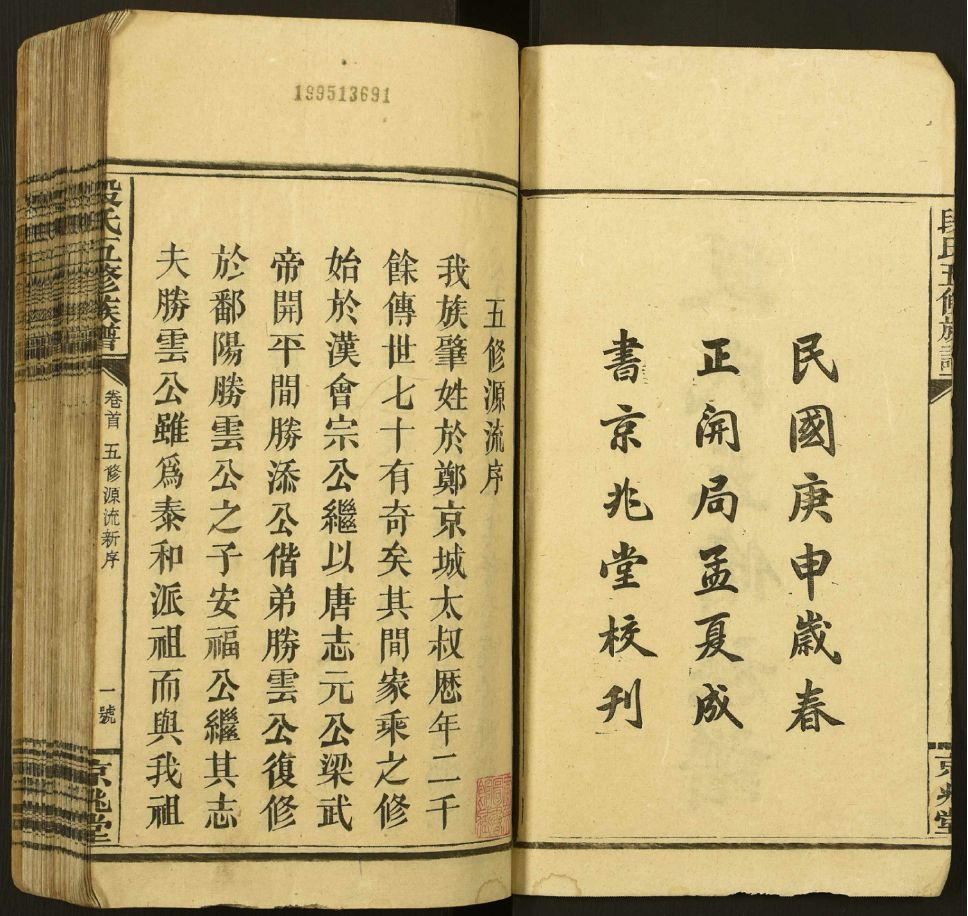 段氏五修族譜
京兆堂
民國庚申歲春
正開局孟夏成
書京兆堂校刋
199513691
五修源流序
我族肇姓於鄭京城太叔歷年二千
餘傳世七十有奇矣其間家乘之修
始於漢會宗公繼以唐志元公梁武
帝開平間勝添公偕弟勝雲公復修
於鄱陽勝雲公之子安福公繼其志
夫勝雲公雖爲泰和派祖而與我祖
段氏五修族譜
卷首 五修源流新序
一號
京兆堂